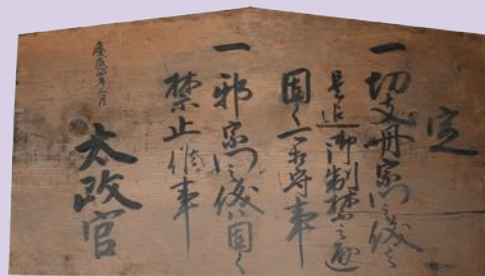 定
一切支丹宗門之儀は
是迄御制禁之通
固く可相守事
一邪宗門之儀は固く
禁止候事
慶應四年三月
太政官